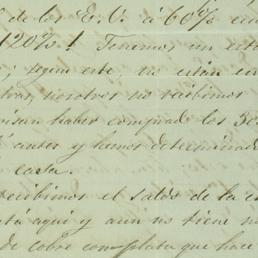 de los E. U. á 60% 
120%! Tenemos un
; segun este no estan en
nosotros no recibimos
haber comprado los 300
antes y hemos determinado
carta.
recibimos el saldo de la
aqui y aun no tiene
de cobre con plata que hace